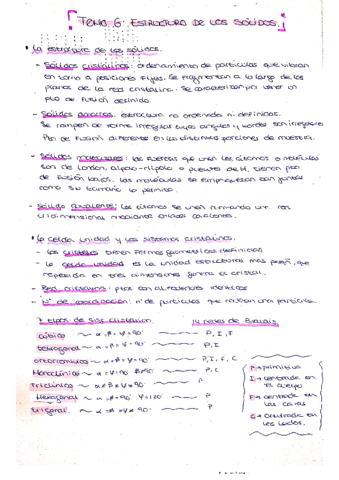 TEMA 6: ESTRUCTURA DE LOS SÓLIDOS.
• La estructura de los sólidos.
- Sólidos cristalinos: ordenamiento de partículas que vibran
en torno a posiciones fijas. Se fragmentan a lo largo de los
planos de la red cristalina. Se caracterizan por tener un
pto de fusión definido.
- Sólidos amorfos: estructura no ordenada ni definida.
Se rompen de forma irregular cuyos ángulos y bordes son irregulares
Ptos de fusión diferentes en las distintas porciones de muestra.
- Sólidos moleculares: las fuerzas que unen los átomos o moléculas
son de London, dipolo-dipolo o puentes de H, tienen ptos
de fusión bajos. Las moléculas se empaquetan tan juntas
como su tamaño lo permita.
- Sólido covalente: los átomos se unen formando una red
tridimensional mediante enlaces covalentes.
• La celda unidad y los sistemas cristalinos.
- Los cristales tienen formas geométricas definidas
- La celda unidad es la unidad estructural más pequeña, que
repetida en tres dimensiones genera el cristal.
- Red cristalina: ptos con alrededores idénticos
- "nº" de coordinación: nº de partículas que rodean una partícula.
7 tipos de Sist. cristalinos.
14 redes de Bravais.
cúbico ~ α=β=γ=90° P, I, F
tetragonal ~ α=β=γ=90° P, I
ortorrómbico ~ α=β=γ=90° P, I, F, C
Monoclínico ~ α=γ=90° β≠90° P, C
Triclínico ~ α≠β≠γ≠90° P
Hexagonal ~ α=β=90° γ=120° P
trigonal ~ α=β=γ≠90° P
P→ primitiva
I→ centrada en
el cuerpo
F→ centrada en
las caras
C→ centrada en
los lados.